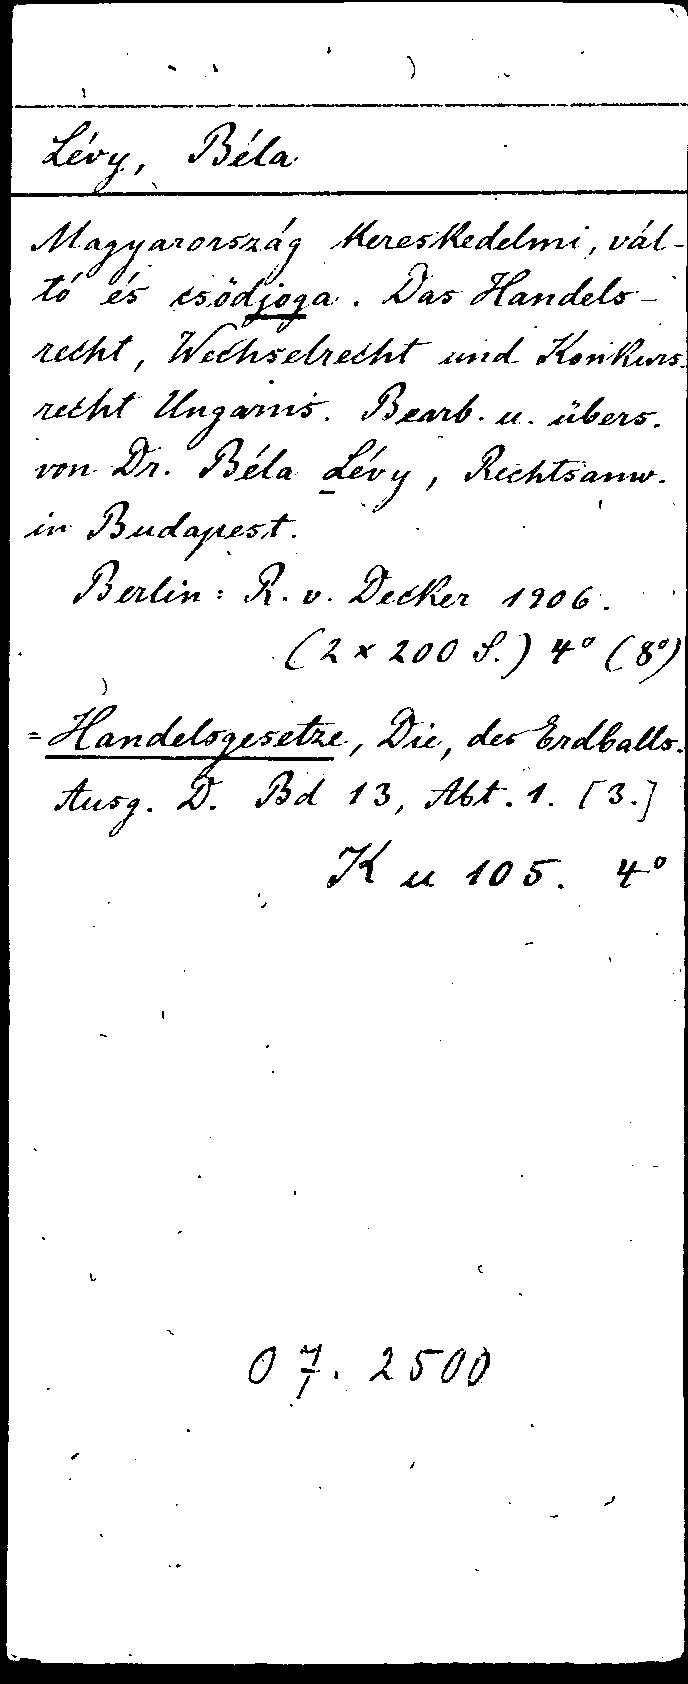 Lévy, Béla
Magyarország kereskedelmi, vál-
tó és csödjoga. Das Handels-
recht, Wechselrecht und Konkurs-
recht Ungarns. Bearb. u. übers.
von Dr. Béla Lévy, Rechtsanw.
in Budapest.
Berlin: R. v. Decker 1906.
(2 x 200 S.) 4° (8°)
= Handelsgesetze, Die, des Erdballs.
Ausg. D. Bd 13, Abt. 1. [3.]
K u 105. 4°
07. 2500